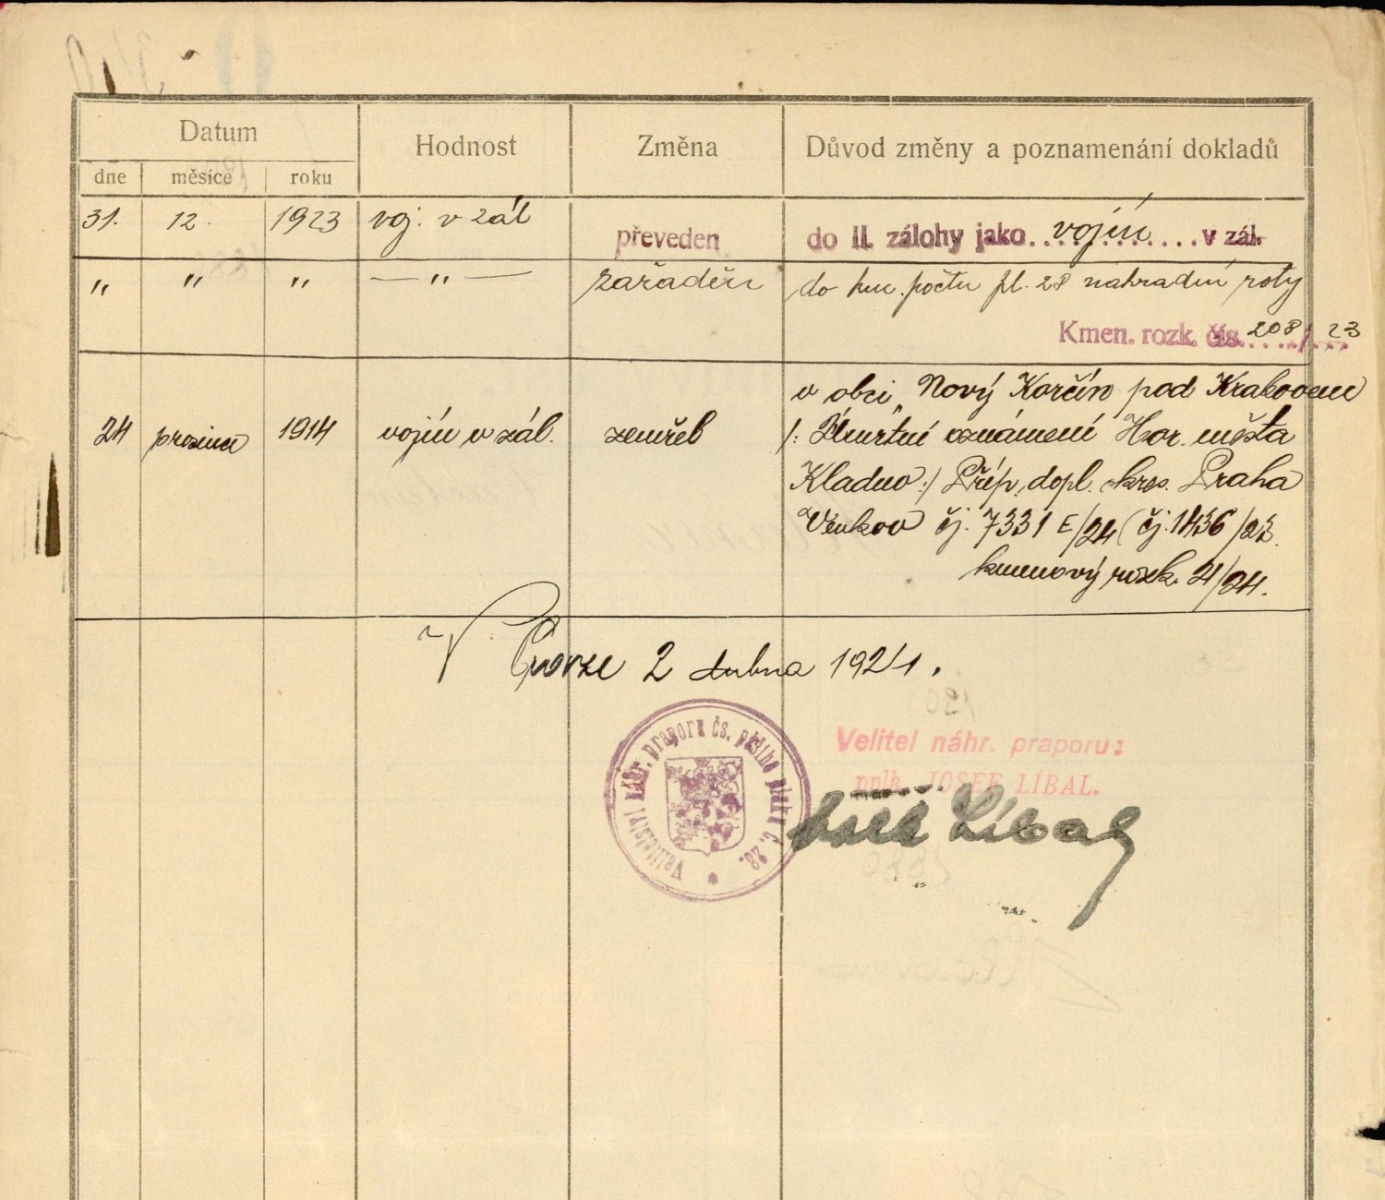 Datum Hodnost Změna Důvod změny a poznamenání dokladů
dne měsíce roku
31. 12. 1923 voj. v zál převeden do II. zálohy jako vojín v zál.
" " " — " — zařaděn do km. počtu pl. 28 náhradní roty
Kmen. rozk. čís. 208/23
v obci „Nový Korčín pod Krakovem
24 prosince 1914 vojín v zál. zemřel /: Úmrtní oznámení Hor. města
Kladno :/ Příp. dopl. okres. Praha
Venkov čj. 7331 E/24 (čj. 1436/23.
kmenový rozk. 4/24.
V Praze 2 dubna 1924.
Velitelství náhr. praporu čs. pěšího pluku č. 28.
Velitel náhr. praporu:
pplk. JOSEF LÍBAL.
Líbal